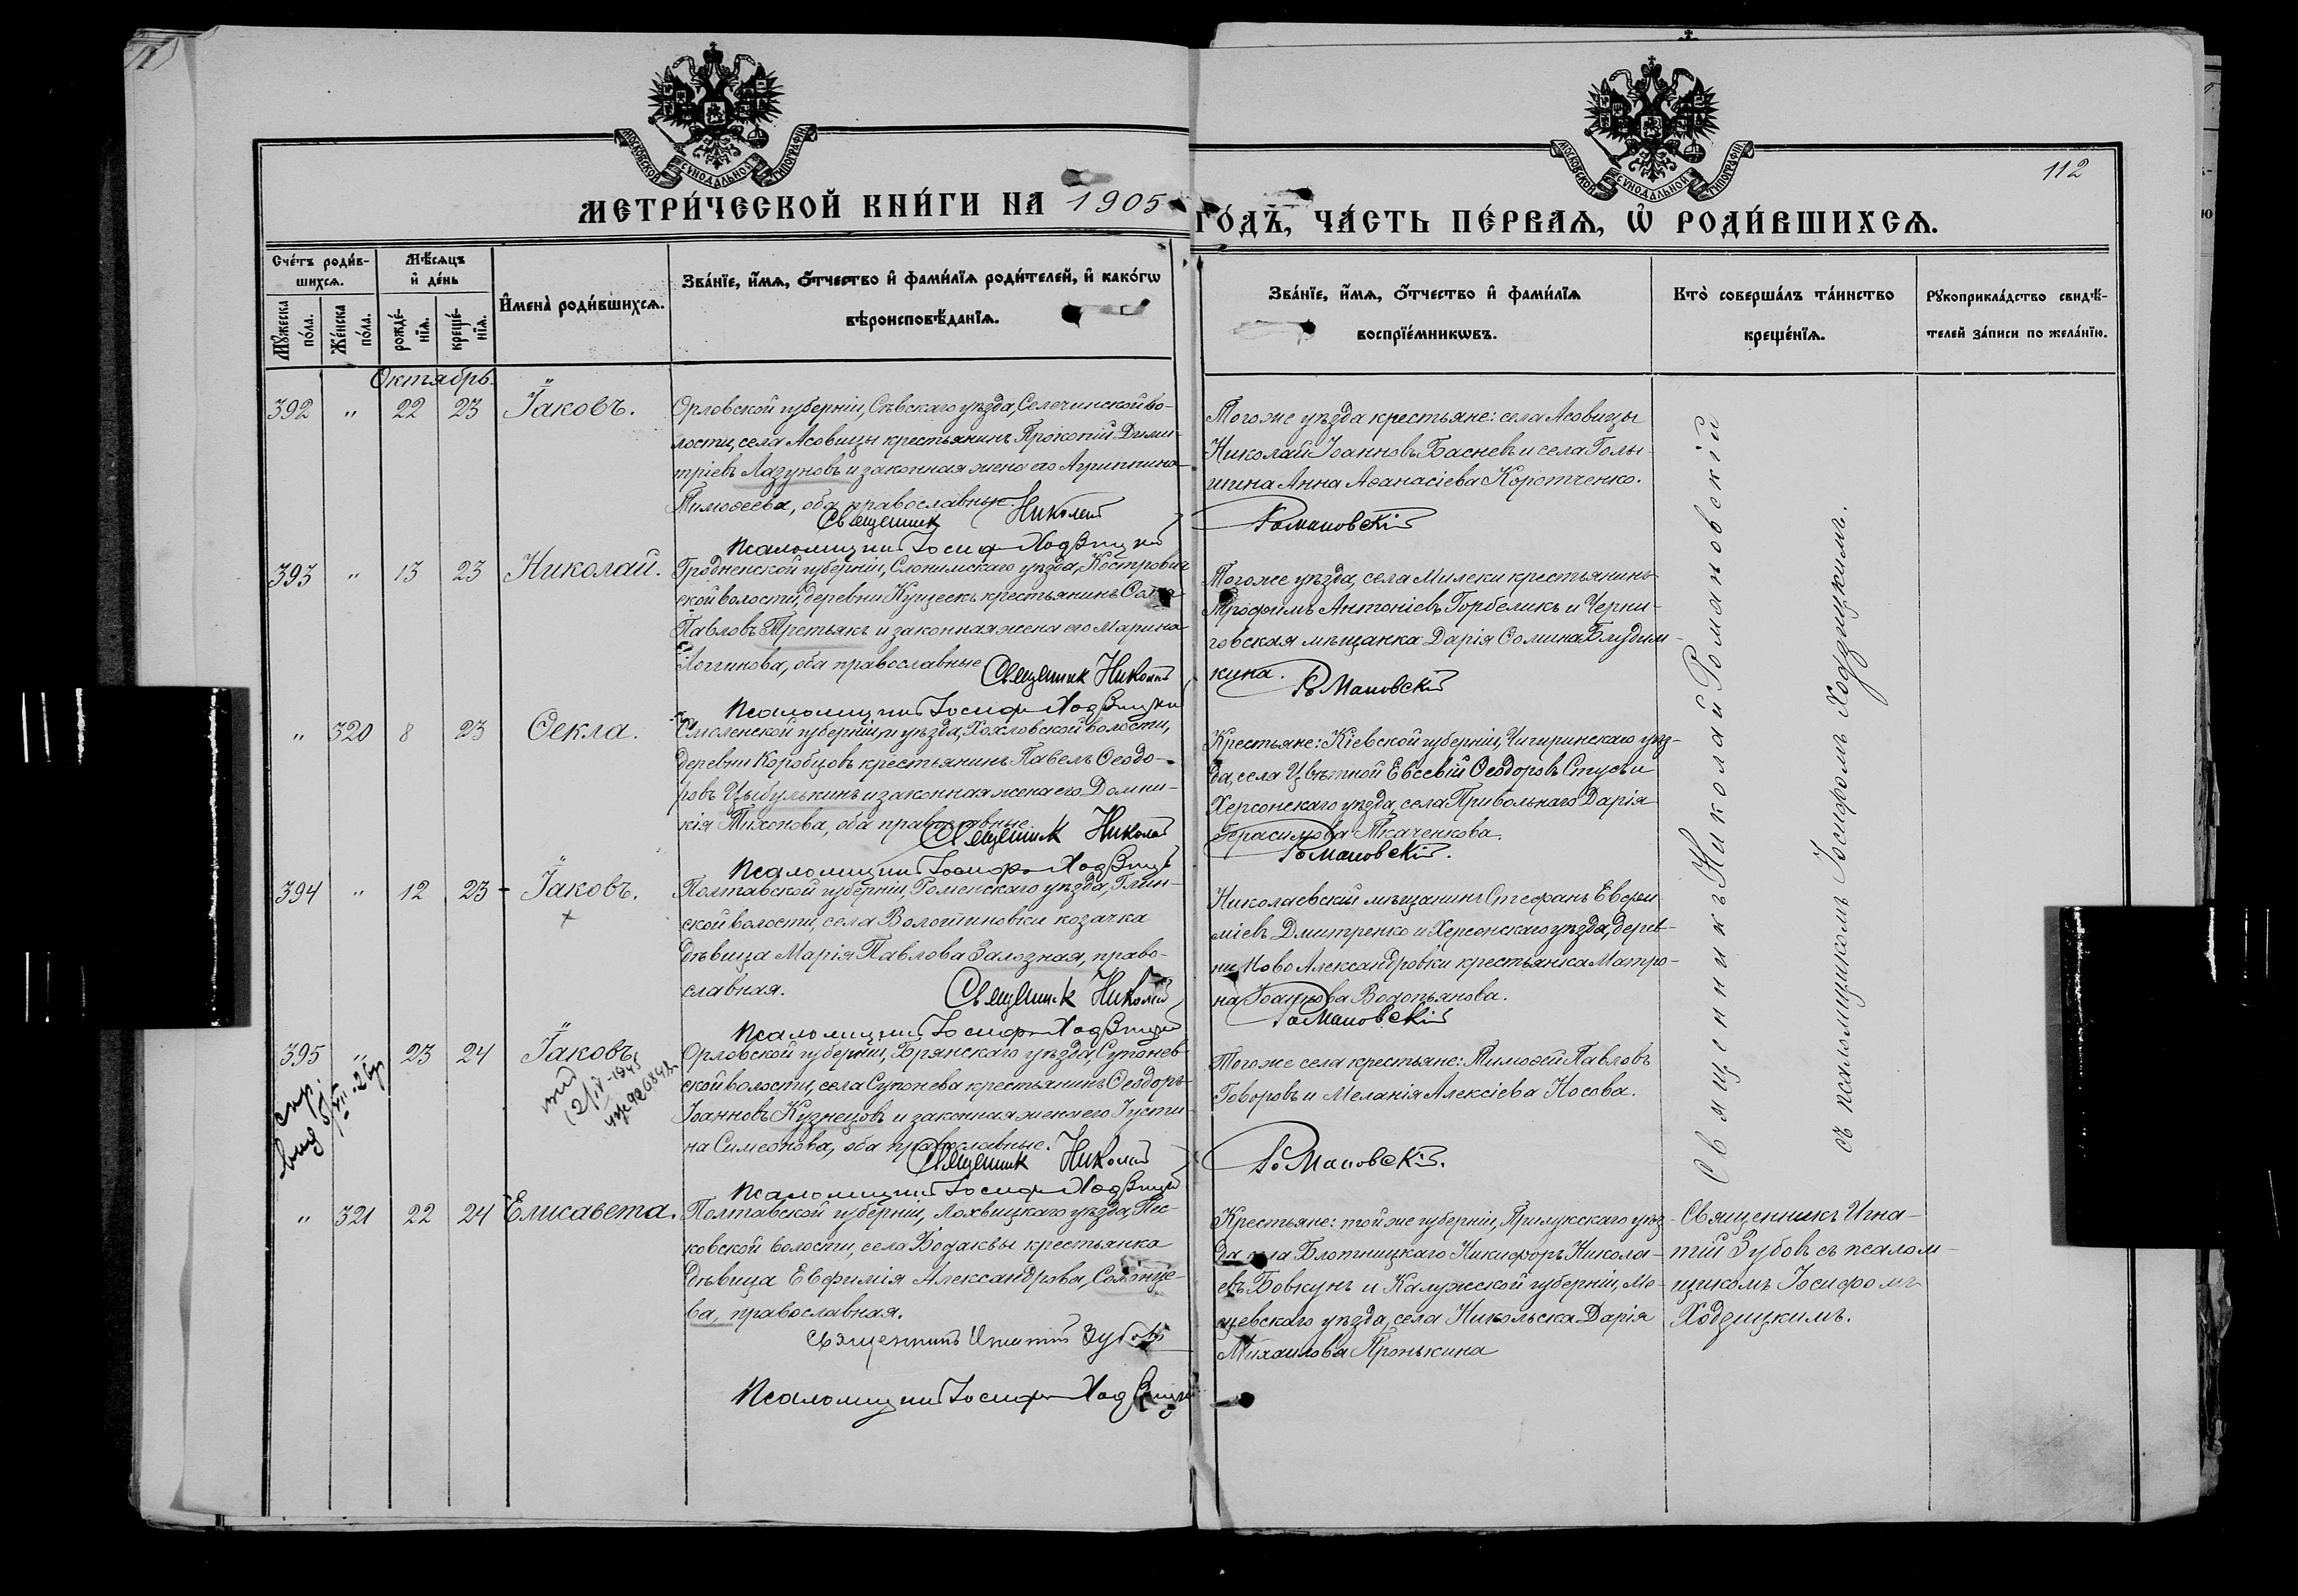 МЕТРИ́ЧЕСКОЙ КНИ́ГИ НА 1905
ГО́ДЪ, ЧА́СТЬ ПЕ́РВАѦ, Ѽ РОДИ́ВШИХСѦ.
112
МОСКОВСКОЙ СѴНОДАЛЬНОЙ ТИПОГРАФІИ
МОСКОВСКОЙ СѴНОДАЛЬНОЙ ТИПОГРАФІИ
Сче́тъ роди́в-
шихсѧ.
Мꙋ́жеска по́ла.
Же́нска по́ла.
Мѣ́сѧцъ и҆ де́нь
рожде́-нїѧ.
креще́-нїѧ.
И҆мена̀ роди́вшихсѧ.
Зва́нїе, и҆́мѧ, ѻ҆́тчество и҆ фами́лїѧ роди́телей, и҆ како́гѡ
вѣроисповѣ́данїѧ.
Зва́нїе, и҆́мѧ, ѻ҆́тчество и҆ фами́лїѧ
воспрїе́мникѡвъ.
Кто̀ соверша́лъ та́инство
креще́нїѧ.
Рꙋкоприкла́дство свидѣ́-
телей за́писи по жела́нїю.
Октябрь.
392 " 22 23 Іаковъ.
Орловской губерніи, Сѣвскаго уѣзда, Селечинской во-
лости, села Асовицы крестьянинъ Прокопій Дими-
тріевъ Лазуновъ и законная жена его Агриппина
Тимоѳеева, оба православные.
Священник Николай
Псаломщик Іосиф Ходзицкий
Того же уѣзда крестьяне: села Асовицы
Николай Іоанновъ Басневъ и села Голы-
шина Анна Аѳанасіева Коротченко.
Романовскій
393 " 13 23 Николай.
Гродненской губерніи, Слонимскаго уѣзда, Кострович
ской волости, деревни крестьянинъ Ѳома
Павловъ Третьякъ и законная жена его Марина
Логгинова, оба православные
Священник Николай
Псаломщик Іосиф Ходзицкий
Того же уѣзда, села Милеки крестьянинъ
Трофимъ Антоніевъ Горбеликъ и Черни-
говская мѣщанка Дарія Ѳомина Блудим-
кина.
Романовскій
" 320 8 23 Ѳекла.
Смоленской губерніи и уѣзда, Хохловской волости,
деревни Коробцовъ крестьянинъ Павелъ Ѳеодо-
ровъ Цыбулькинъ и законная жена его Домни-
кія Тихонова, оба православные.
Священник Николай
Псаломщик Іосиф Ходзицкий
Крестьяне: Кіевской губерніи, Чигиринскаго уѣз-
да, села Цвѣтной Евсевій Ѳеодоровъ Стусъ и
Херсонскаго уѣзда, села Привольнаго Дарія
Герасимова Ткаченкова.
Романовскій.
394 " 12 23 Іаковъ.
Полтавской губерніи, Роменскаго уѣзда, Глин-
ской волости, села Волошиновки козачка
дѣвица Марія Павлова Залозная, право-
славная.
Священник Николай
Псаломщик Іосиф Ходзицкий
Николаевскій мѣщанинъ Стефанъ Евфи
міевъ Дмитренко и Херсонскаго уѣзда, дерев-
ни Ново Александровки крестьянка Матро-
на Іоаннова Водопьянова.
Романовскій
395 " 23 24 Іаковъ.
Орловской губерніи, Брянскаго уѣзда, Супонев-
ской волости, села Супонева крестьянинъ Ѳеодоръ
Іоанновъ Кузнецовъ и законная жена его Іусти-
на Симеонова, оба православные.
Священник Николай
Псаломщик Іосиф Ходзицкий
Того же села крестьяне: Тимоѳей Павловъ
Говоровъ и Меланія Алексіева Носова.
Романовскій.
Священникъ Николай Романовскій
съ псаломщикомъ Іосифомъ Ходзицкимъ.
" 321 22 24 Елисавета.
Полтавской губерніи, Лохвицкаго уѣзда, Пес-
ковской волости, села Бодаквы крестьянка
дѣвица Евфимія Александрова, Солонце-
ва, православная.
Священникъ Игнатій Зубовъ
Псаломщик Іосиф Ходзицкий
Крестьяне: той же губерніи, Прилукскаго уѣз-
да села Блотницкаго Никифоръ Никола-
евъ Бовкунъ и Калужской губерніи, Мо-
щевскаго уѣзда, села Никольска Дарія
Михаилова Пронькина
Священникъ Игна-
тій Зубовъ съ псалом-
щикомъ Іосифомъ
Ходзицкимъ.